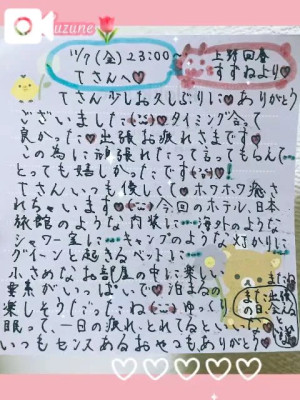 Suzune
11/7(金)23:00〜
上野回春
すずねより♥
Tさんへ♥
Tさん少しお久しぶりに♥ありがとう
ございました(^^)♥タイミング合って
良かった♥出張お疲れさまです♥
この為に頑張れたって言ってもらえて…
とっても嬉しかったです(^^)!
Tさんいつも優しくて♥ホワホワ癒さ
れちゃいます♥(^^)今回のホテル、日本
旅館のような内装に…海外のような
シャワー室に…キャンプのような灯かりに
グイーンと起きるベッドに…
小さめなお部屋の中に楽しい
要素がいっぱいで♥泊まるの
楽しそうだったね(^^)ゆっくり
眠って、一日の疲れとれてるといいな♥
いつもセンスあるおやつもありがとう♥
また♥
また出張
の日、会える